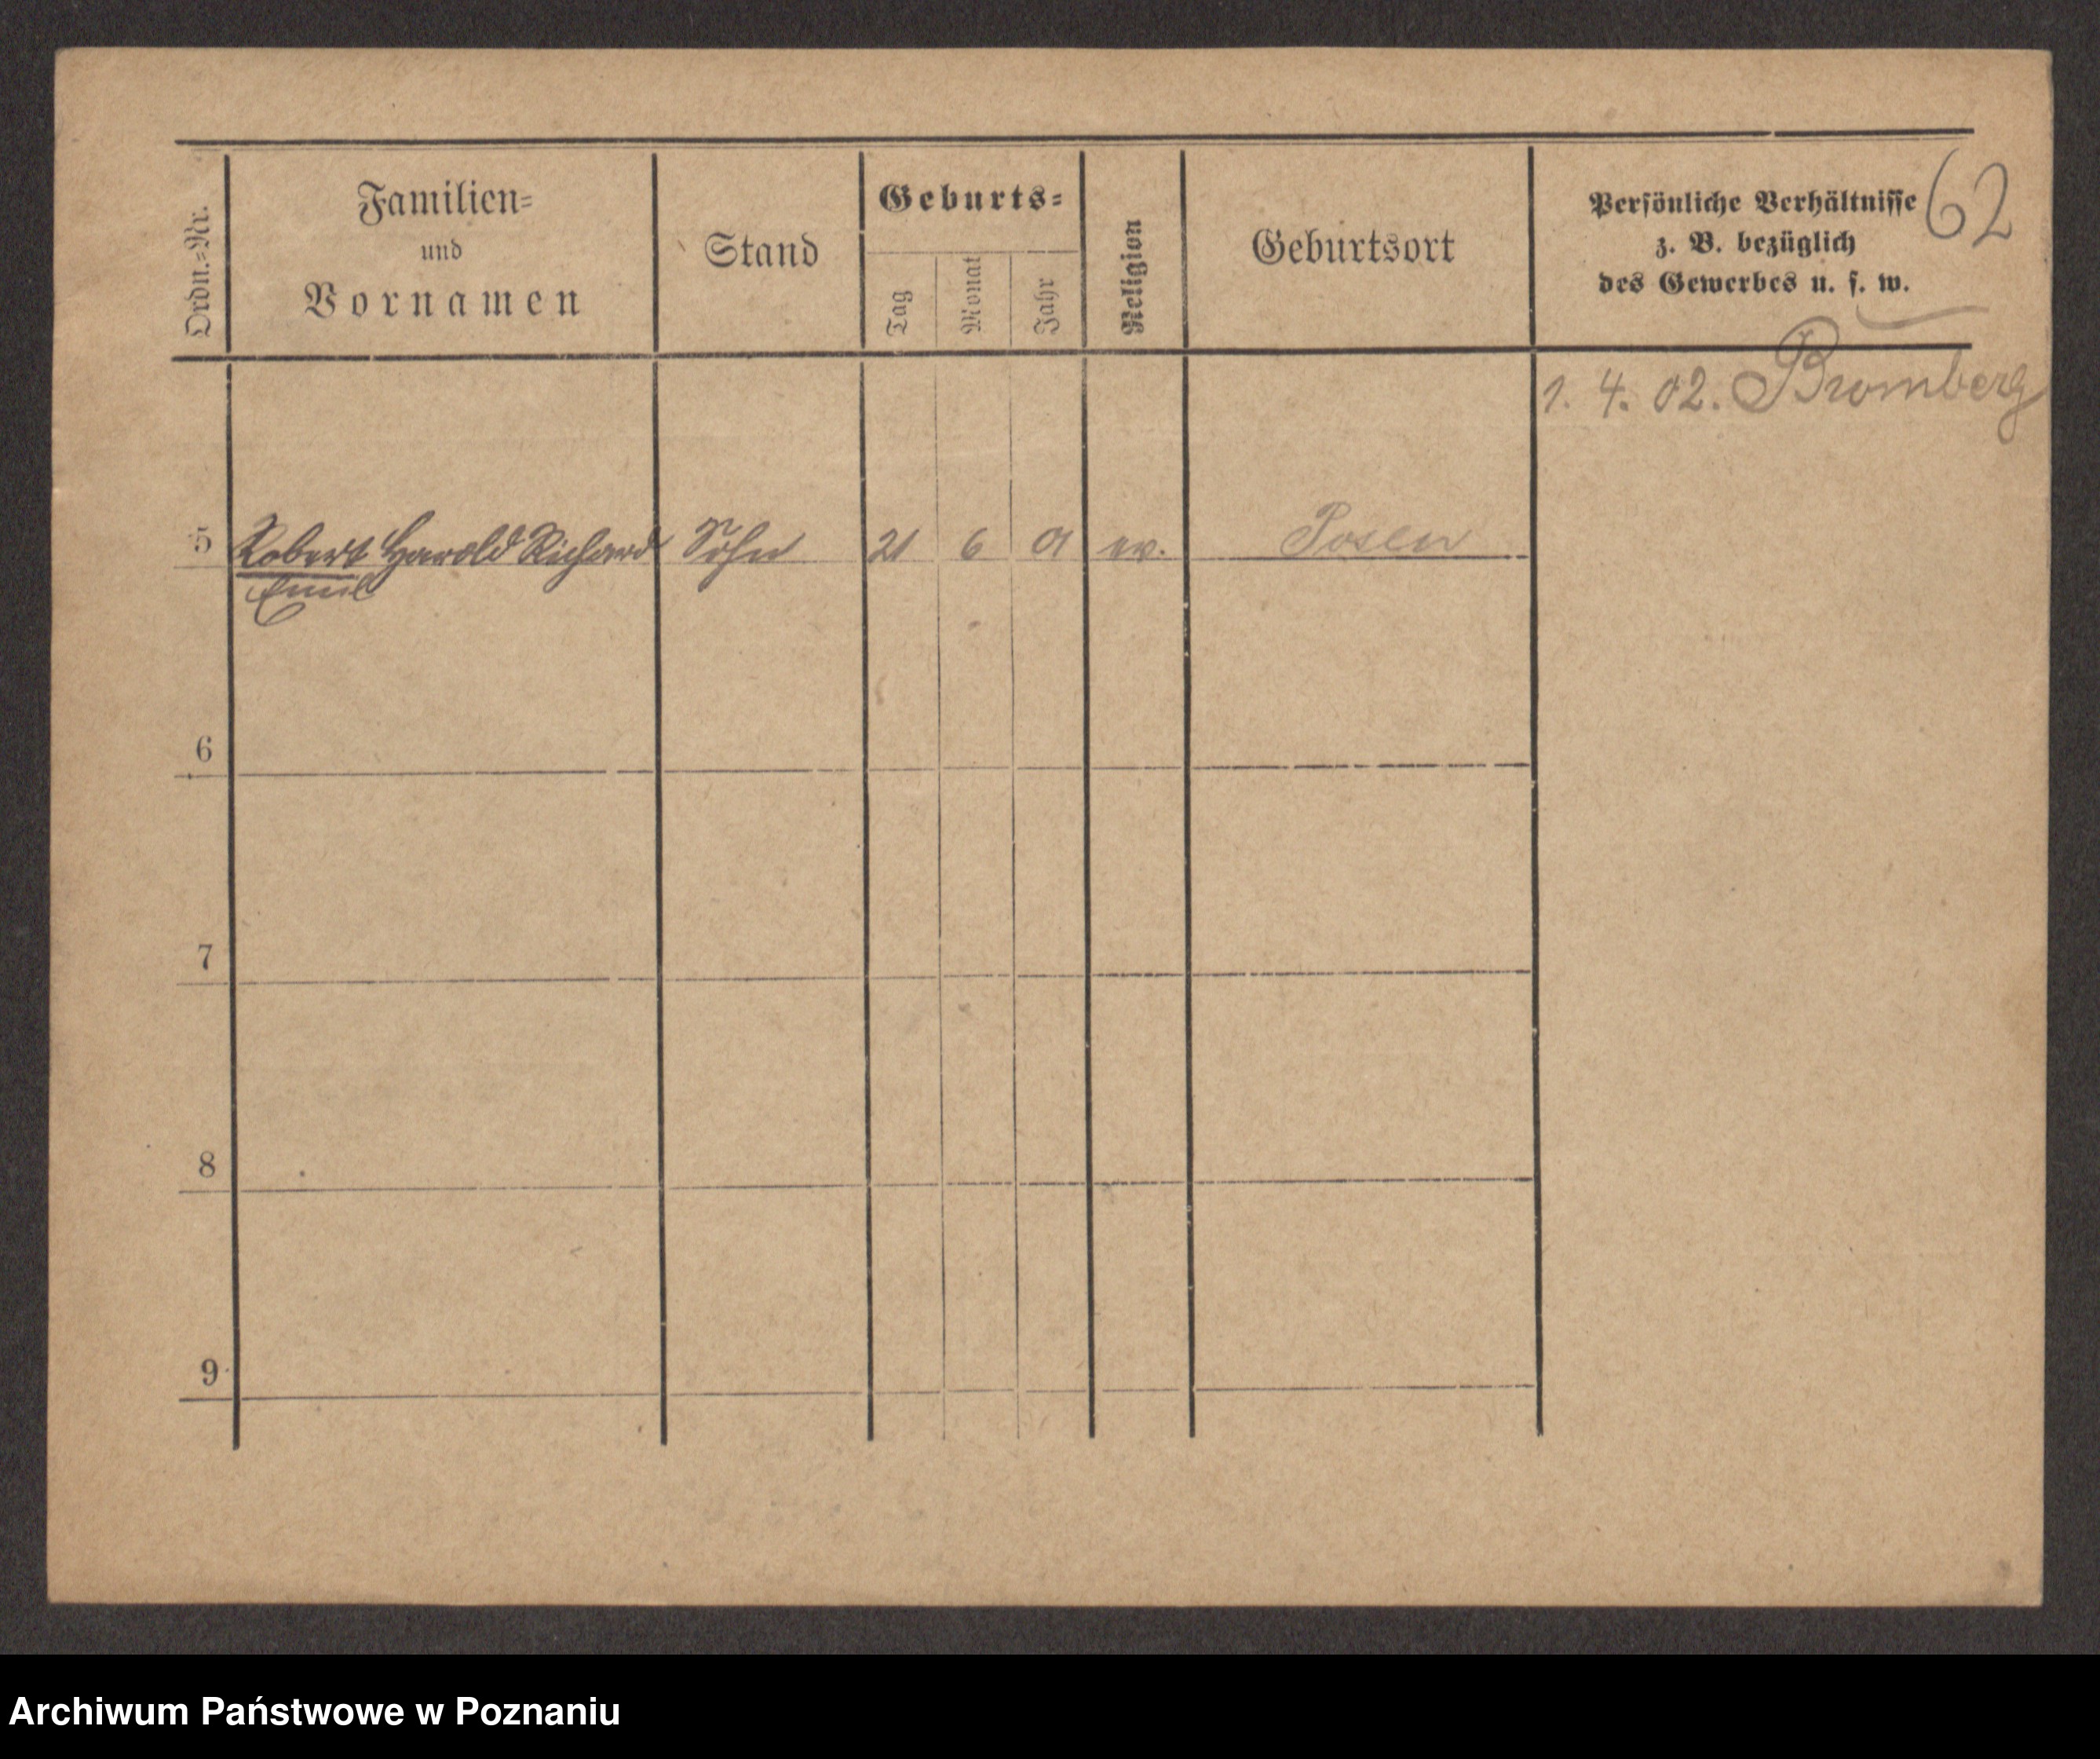 62
Ordn.-Nr.
Familien-
und
Vornamen
Stand
Geburts-
Tag
Monat
Jahr
Religion
Geburtsort
Persönliche Verhältnisse
z. B. bezüglich
des Gewerbes u. s. w.
1. 4. 02. Bromberg
5 Robert Harold Richard Sohn 21 6 01 ev. Posen
Emil
6
7
8
9
Archiwum Państwowe w Poznaniu